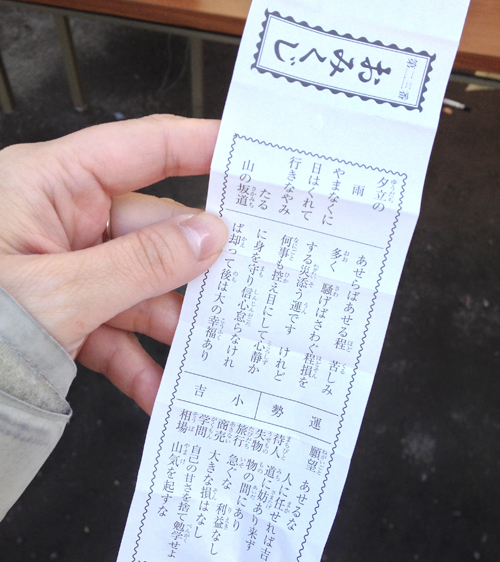 おみくじ
夕立の
雨
やまなくに
日はくれて
行きなやみ
たる
山の坂道
あせらばあせる程 苦しみ
多く 騒げばさわぐ程損を
する災添う運です けれど
何事も控え目にして心静か
に身を守り信心怠らなけれ
ば却って後は大の幸福あり
運勢
小吉
願望 あせるな 人に任せれば吉
待人 道に妨あり来ず
失物 物の間にあり
旅行 急ぐな 利益なし
商売 大きな損はなし
学問 自己の甘さを捨て勉学せよ
相場 山気を起すな